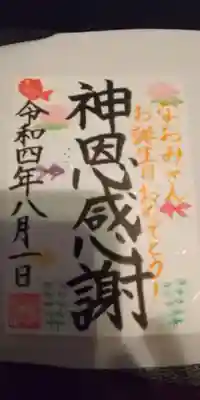 なおみさん
お誕生日おめでとう!
神恩感謝
令和四年八月一日